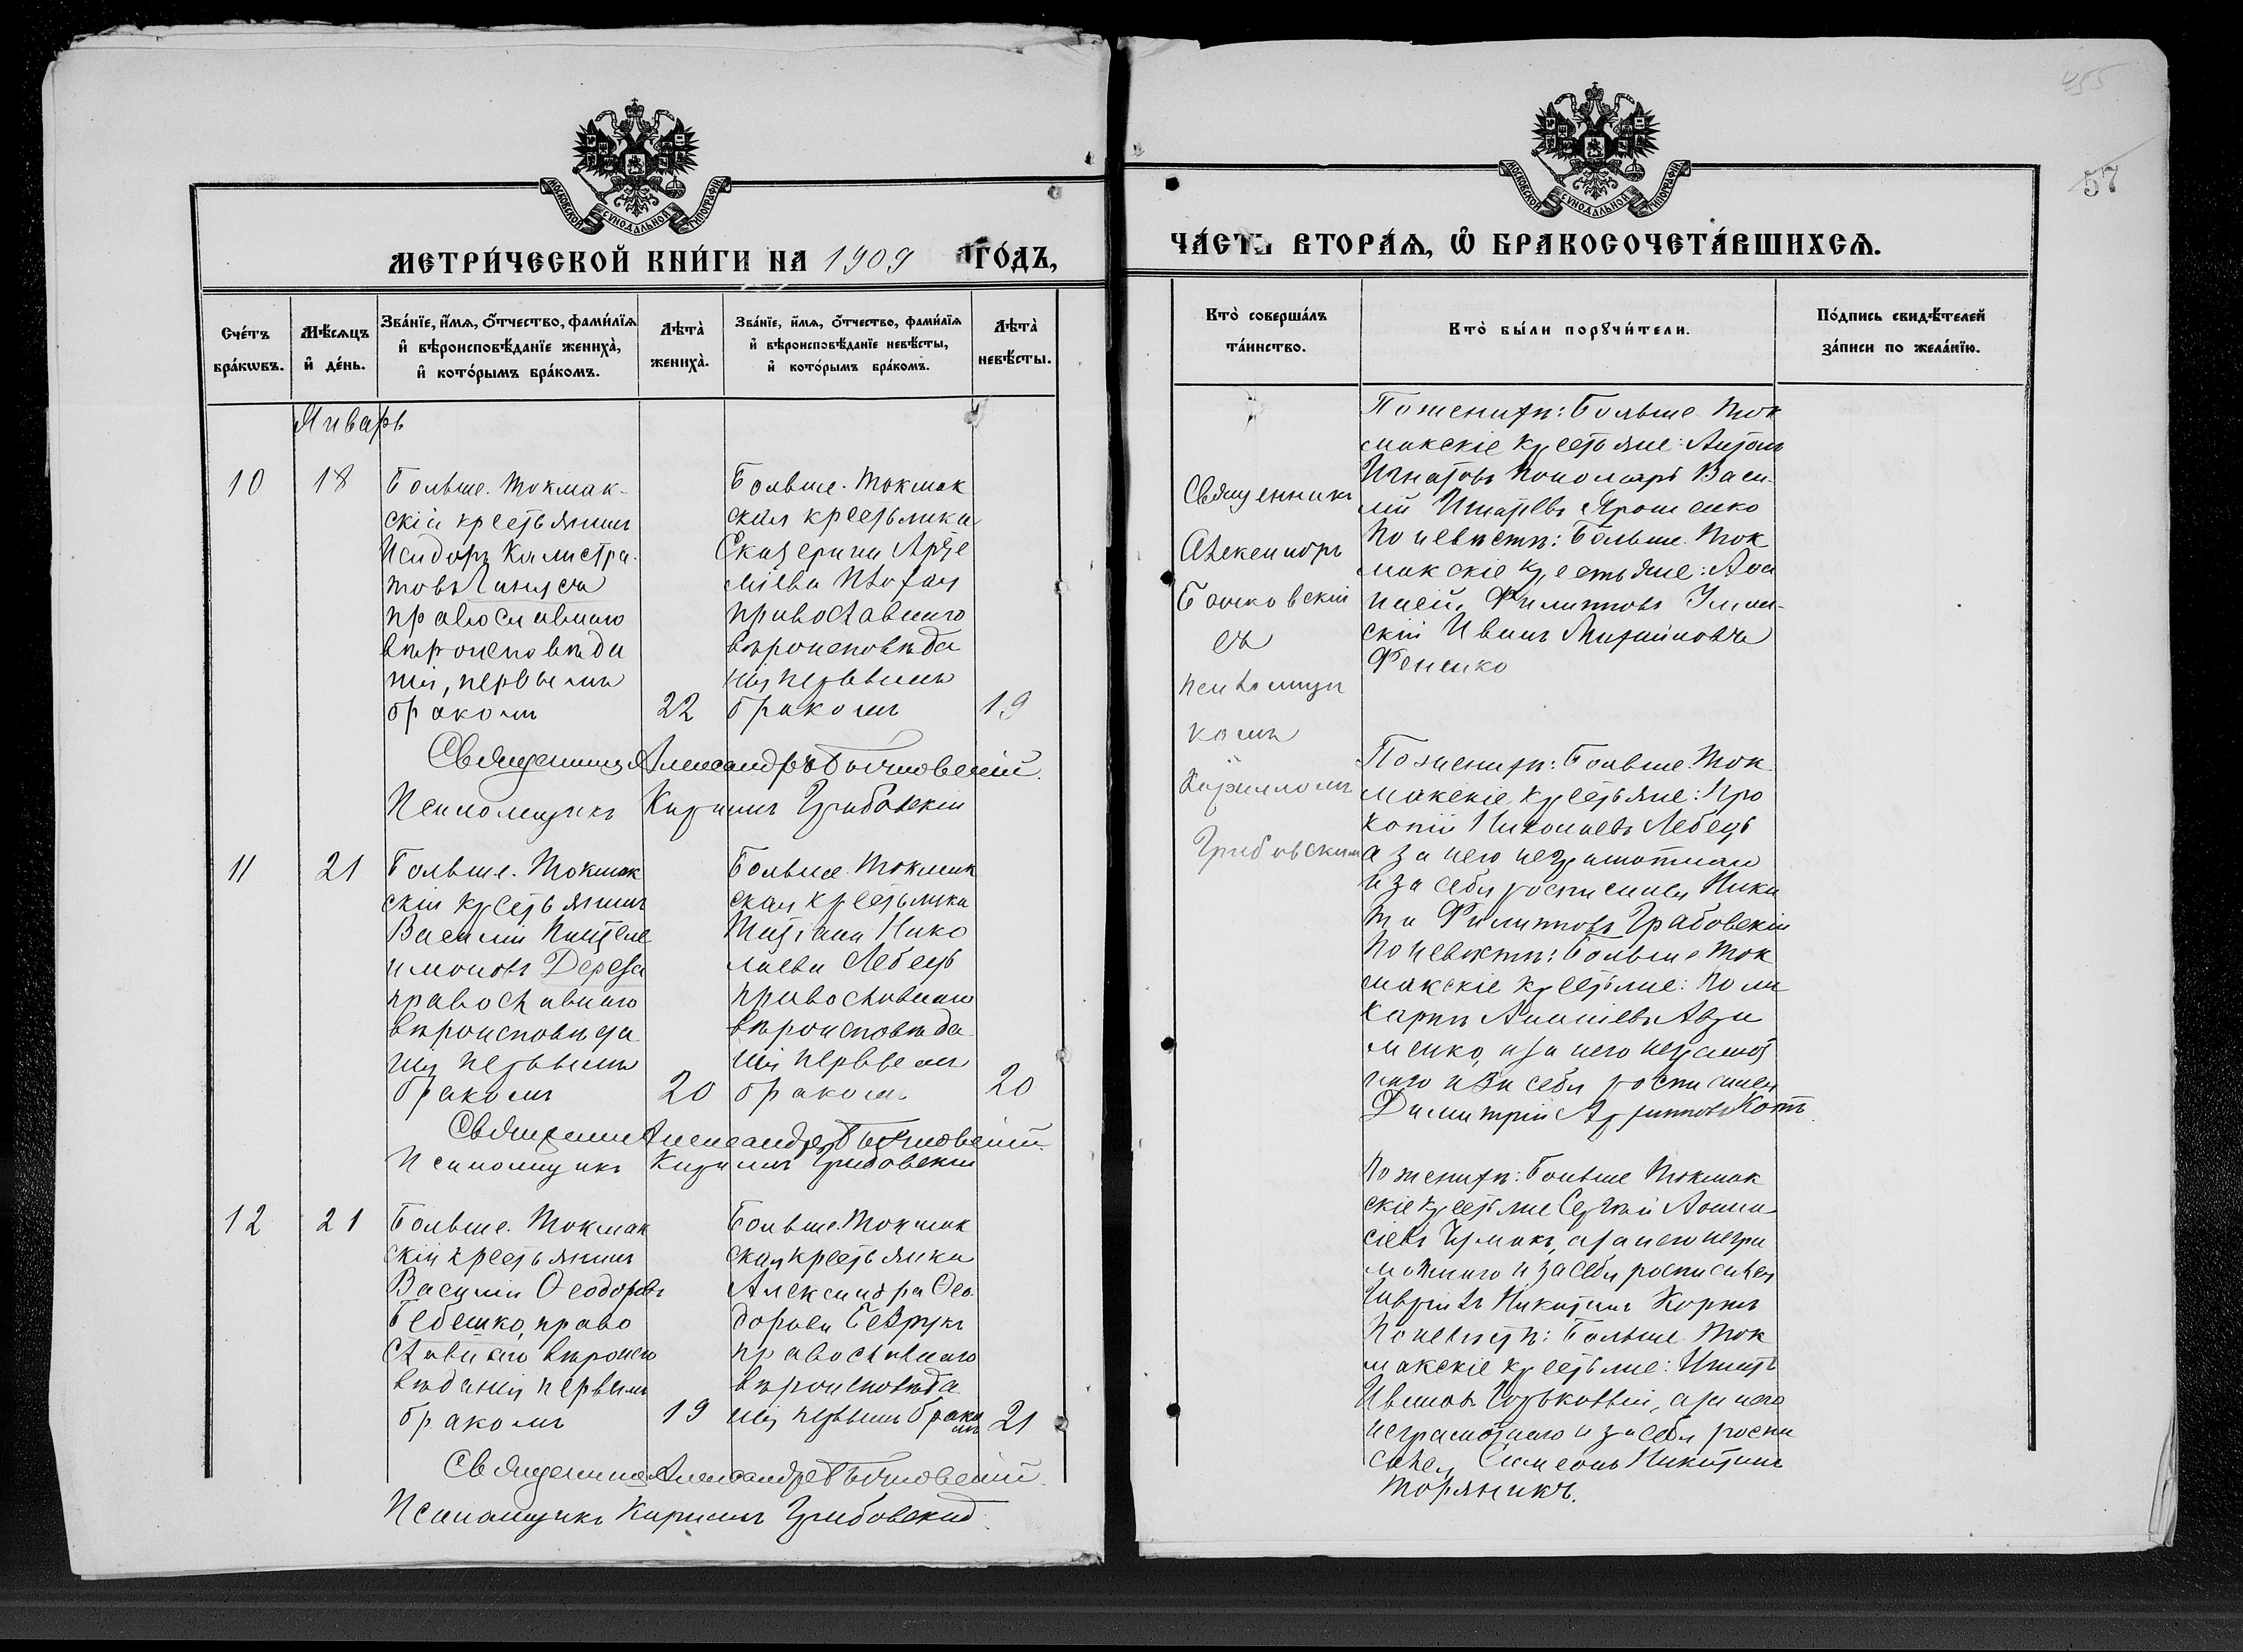 455
57
МОСКОВСКОЙ СѴНОДАЛЬНОЙ ТИПОГРАФІИ
МЕТРИ́ЧЕСКОЙ КНИ́ГИ НА 1909 ГО́ДЪ,
Сче́тъ бра́кѡвъ.
Мѣ́сѧцъ и҆ де́нь.
Зва́нїе, и҆́мѧ, ѻ҆́тчество, фами́лїѧ
и҆ вѣроисповѣ́данїе жениха̀,
и҆ кото́рымъ бра́комъ.
Лѣта̀ жениха̀.
Зва́нїе, и҆́мѧ, ѻ҆́тчество, фами́лїѧ
и҆ вѣроисповѣ́данїе невѣ́сты,
и҆ кото́рымъ бра́комъ.
Лѣта̀ невѣ́сты.
Январь
10
18
Больше-Токмак-
скій крестьянинъ
Исидоръ Калистра-
товъ
православнаго
вѣроисповѣда
нія, первымъ
бракомъ
22
Больше-Токмак
ская крестьянка
Екатерина Арте
міева
православнаго
вѣроисповѣда
нія первымъ
бракомъ
19
Священникъ Александръ Бычковскій.
Псаломщикъ Кириллъ Грибовскій
11
21
Больше-Токмак
скій крестьянинъ
Василій Пантеле
имоновъ Дереза
православнаго
вѣроисповѣда
нія первымъ
бракомъ
20
Больше-Токмак
ская крестьянка
Татіана Нико
лаева Лебедь
православнаго
вѣроисповѣда
нія первымъ
бракомъ
20
Священникъ Александръ Бычковскій.
Псаломщикъ Кириллъ Грибовскій
12
21
Больше-Токмак
скій крестьянинъ
Василій Ѳеодоровъ
Бебешко, право
славнаго вѣроиспо
вѣданія первымъ
бракомъ
19
Больше-Токмак
ская крестьянка
Александра Ѳео
дорова
православнаго
вѣроисповѣда
нія первымъ брако
мъ
21
Священникъ Александръ Бычковскій.
Псаломщикъ Кириллъ Грибовскій
МОСКОВСКОЙ СѴНОДАЛЬНОЙ ТИПОГРАФІИ
ЧА́СТЬ ВТОРА́Ѧ, Ѽ БРАКОСОЧЕТА́ВШИХСѦ.
Кто̀ соверша́лъ
та́инство.
Кто̀ бы́ли порꙋчи́тели.
По́дпись свидѣ́телей
за́писи по жела́нїю.
Священникъ
Александръ
Бычковскій
съ
псаломщи
комъ
Кирилломъ
Грибовскимъ
По женихѣ: Больше-Ток
макскіе крестьяне: Антонъ
Игнатовъ Пономарь Васи
лій Игнатьевъ Ярошенко
По невѣстѣ: Больше-Ток
макскіе крестьяне: Аѳа
насій Филипповъ Уман-
скій Иванъ
Фененко
По женихѣ: Больше-Ток
макскіе крестьяне: Про
копій Николаевъ Лебедь
а за него неграмотнаго
и за себя росписался Ники
та Филипповъ Грабовскій
По невѣстѣ: Больше-Ток
макскіе крестьяне: Поли
карпъ Ананіевъ Авра
менко, а за него неграмот
наго и за себя росписался
Димитрій Архиповъ Котъ
По женихѣ: Больше-Токмак
скіе крестьяне Сергѣй Аѳана
сіевъ Чумакъ, а за него негра
мотнаго и за себя росписался
Гавріилъ Никитинъ
По невѣстѣ: Больше-Ток
макскіе крестьяне: Игнатъ
Ивановъ а за него
неграмотнаго и за себя роспи
сался Симеонъ Никитинъ
Торяникъ.